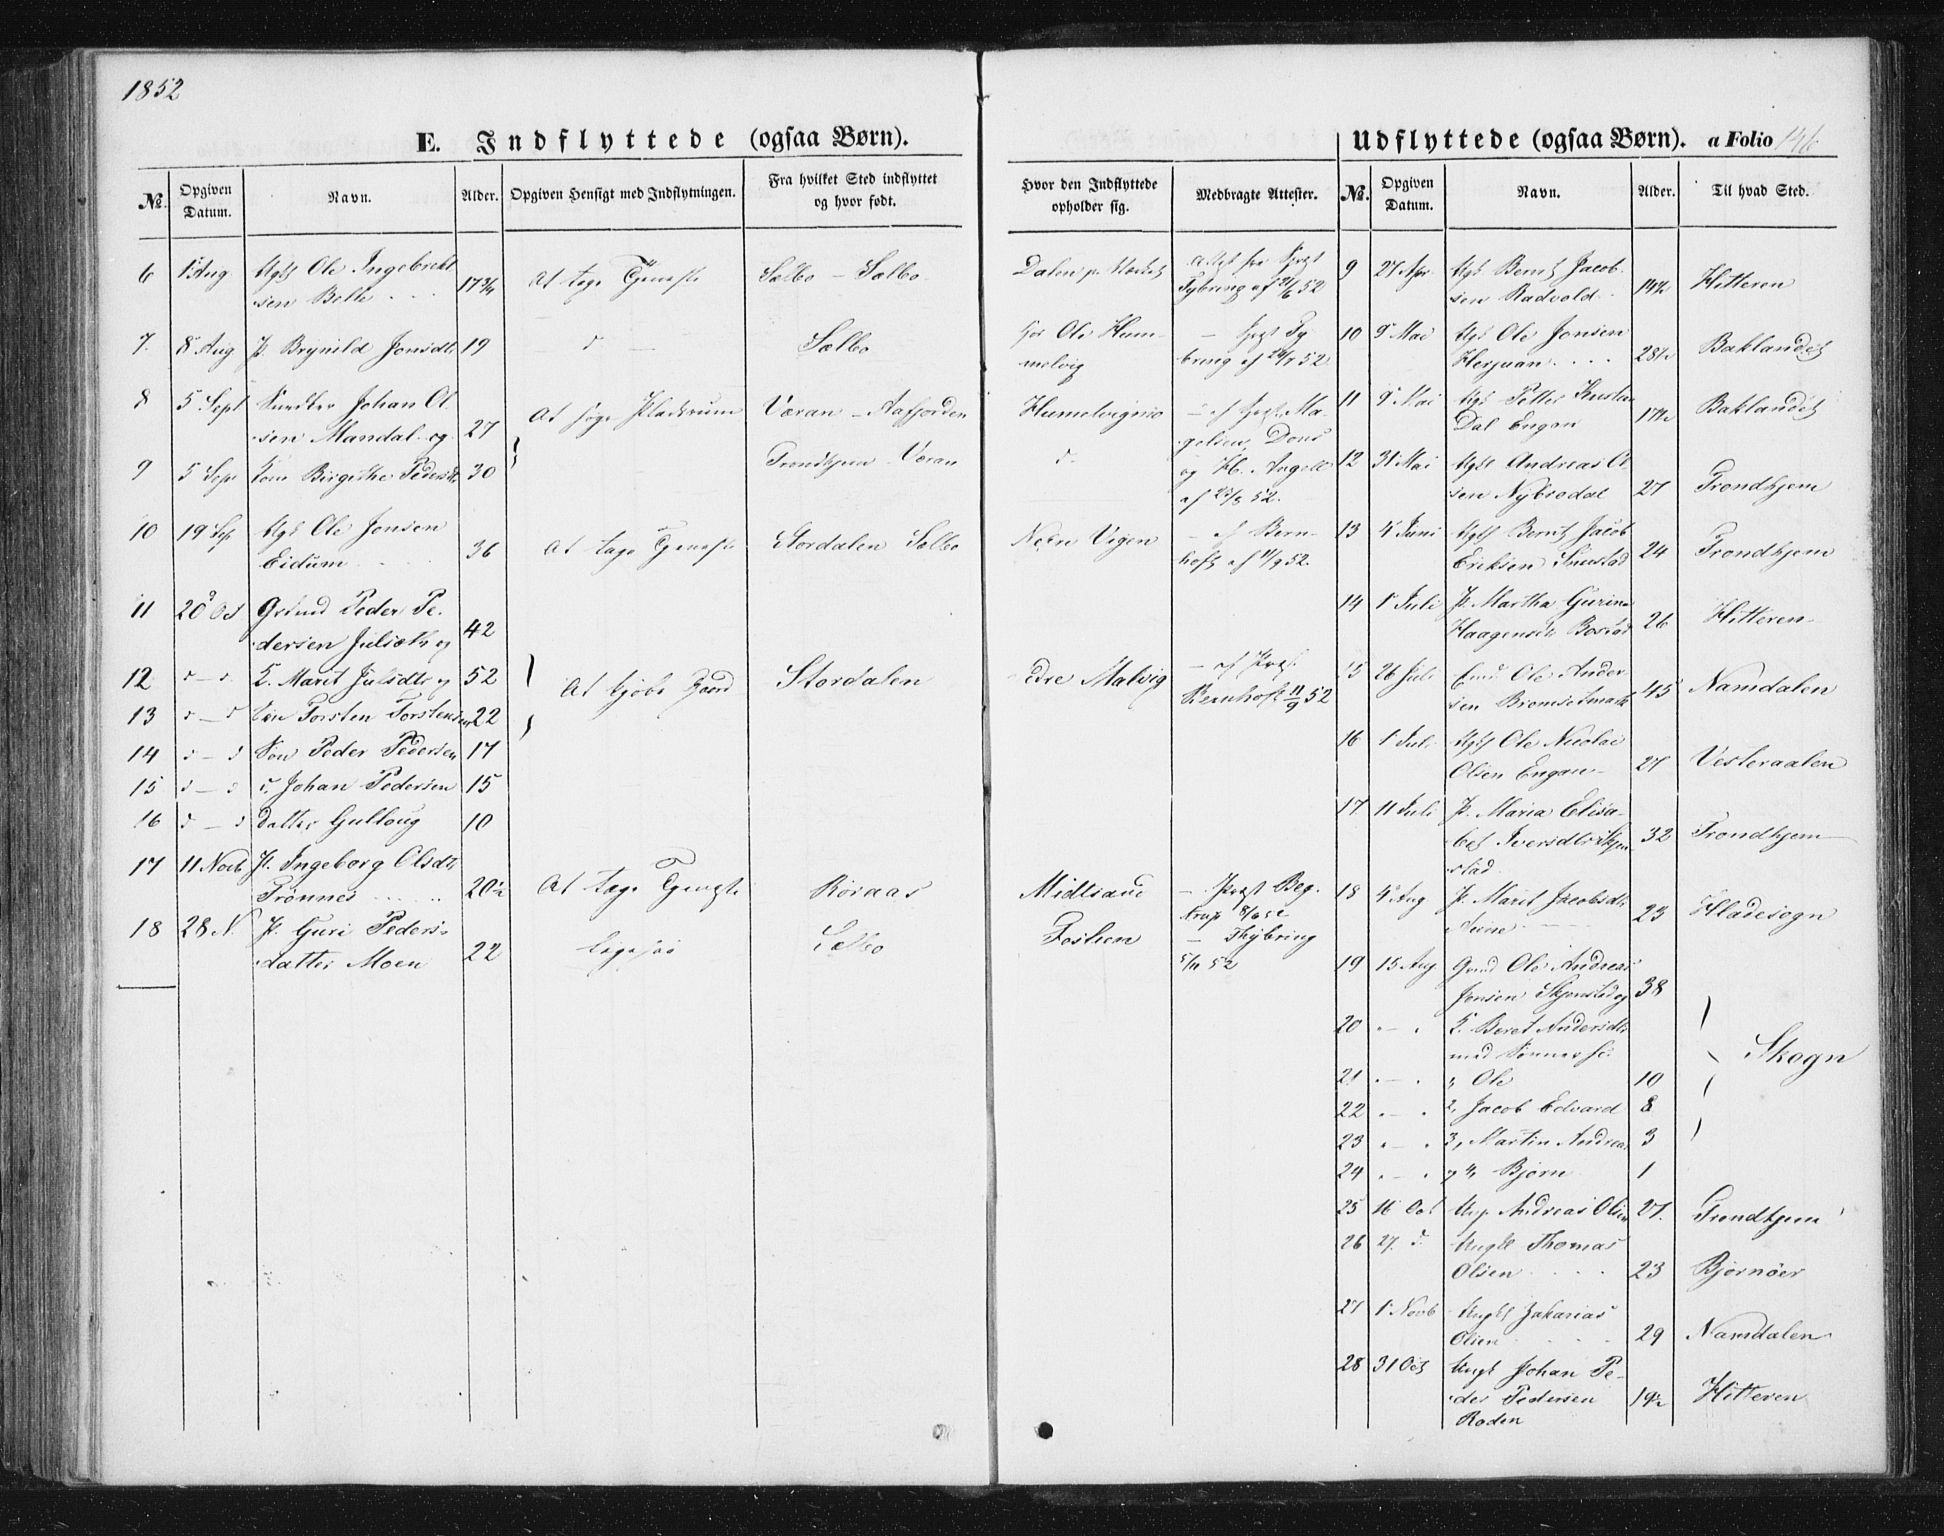 1852
E. Indflyttede (ogsaa Børn).
No. Opgiven Datum. Navn. Alder. Opgiven Hensigt med Indflytningen. Fra hvilket Sted indflyttet og hvor født. Hvor den Indflyttede opholder sig. Medbragte Attester.
6 1 Aug Ungk Ole Ingebrekt
sen Belle 17 3/4 At tage Tjeneste Sælbo - Sælbo Dalen
Tybring af 52
7. 8 Aug P. Brynild Jonsdtr 19 - d - Sælbo hos Ole Hum-
melvig
bring af 52
8 5 Sept Johan Ol
sen Mandal og 27 At søge Pladsrum Væran - Aafjorden Humelvig
9 5 Sept Kone Birgithe Pedersdtr 30 Trondhjem - Væran d.
og H. Angell
af 52.
10 19 Sep Ungk Ole Jonsen
Eidum 36 At tage Tjeneste Stordalen Sælbo Nedre Vigen - af Bern-
hoft af 11/9 52.
11 20 Oct Grdmd Peder Pe-
dersen Julseth og 42
12 d - d. K. Marit Julsdtr og 52 At kjøbe Gaard Stordalen Øvre Malvig - af Prst.
Bernhoft 11/9 52
13 d - d Torsten Torstensen 22
14 d - d Søn Peder Pedersen 17
15 d - d d. Johan Pedersen 15
16 d - d datter Gulloug 10
17 11 Novb P. Ingeborg Olsdtr
Trønnes 20 1/2 At tage Tjeneste Røraas Midtsand - Prst Beg-
trup 52
18 28 N. P. Guri Peders-
datter Moen 22 ligesaa Selbo Fostien - Thybring
5/11 52
Udflyttede (ogsaa Børn). a Folio 146
No. Opgiven Datum. Navn. Alder. Til hvad Sted.
9 27 Apr. Ungk Bernt Jacob-
sen Radvold 19 1/2 Hitteren
10 9 Mai Ungk Ole Jonsen
Herjuan 28 1/2 Baklandet
11 9 Mai Ungk Petter
Dal Engan 17 1/2 Baklandet
12 31 Mai Ungk Andreas Ol
sen Nybrodal 27 Trondhjem
13 4 Juni Ungk Bernt Jacob
Eriksen 24 Trondhjem
14 1 Juli P. Martha Gurine
Haagensdtr Bostad 26 Hitteren
15 26 Juli Ole Ander
sen Bromsetmark 45 Namdalen
16 1 Juli Ungk Ole Nicolai
Olsen Engan 27 Vesteraalen
17 11 Juli P. Maria Elisa-
bet Iversdtr Skjen
stad 32 Trondhjem
18 4 Aug P. Marit Jacobsdtr
23 Hladesogn
19 15 Aug Grmd Ole Andreas
Jonsen Skjenstad og 38
20 - - K. Beret Andersdtr
med Sønner
Skogn
21 - - 1, Ole 10
22 - - 2, Jacob Edvard 8
23 - - 3, Martin Andreas 3
24 - - og 4, Bjørn 1
25 16 Oct Ung. Andreas Olsen 27. Trondhjem
26 27. d. Ungk Thomas
Olsen 23 Bjørnöer
27 1 Novb Ungk Zakarias
Olsen 29 Namdalen
28 31 Oct Ungk Johan Pe-
der Pedersen
Roden 19 1/2 Hitteren